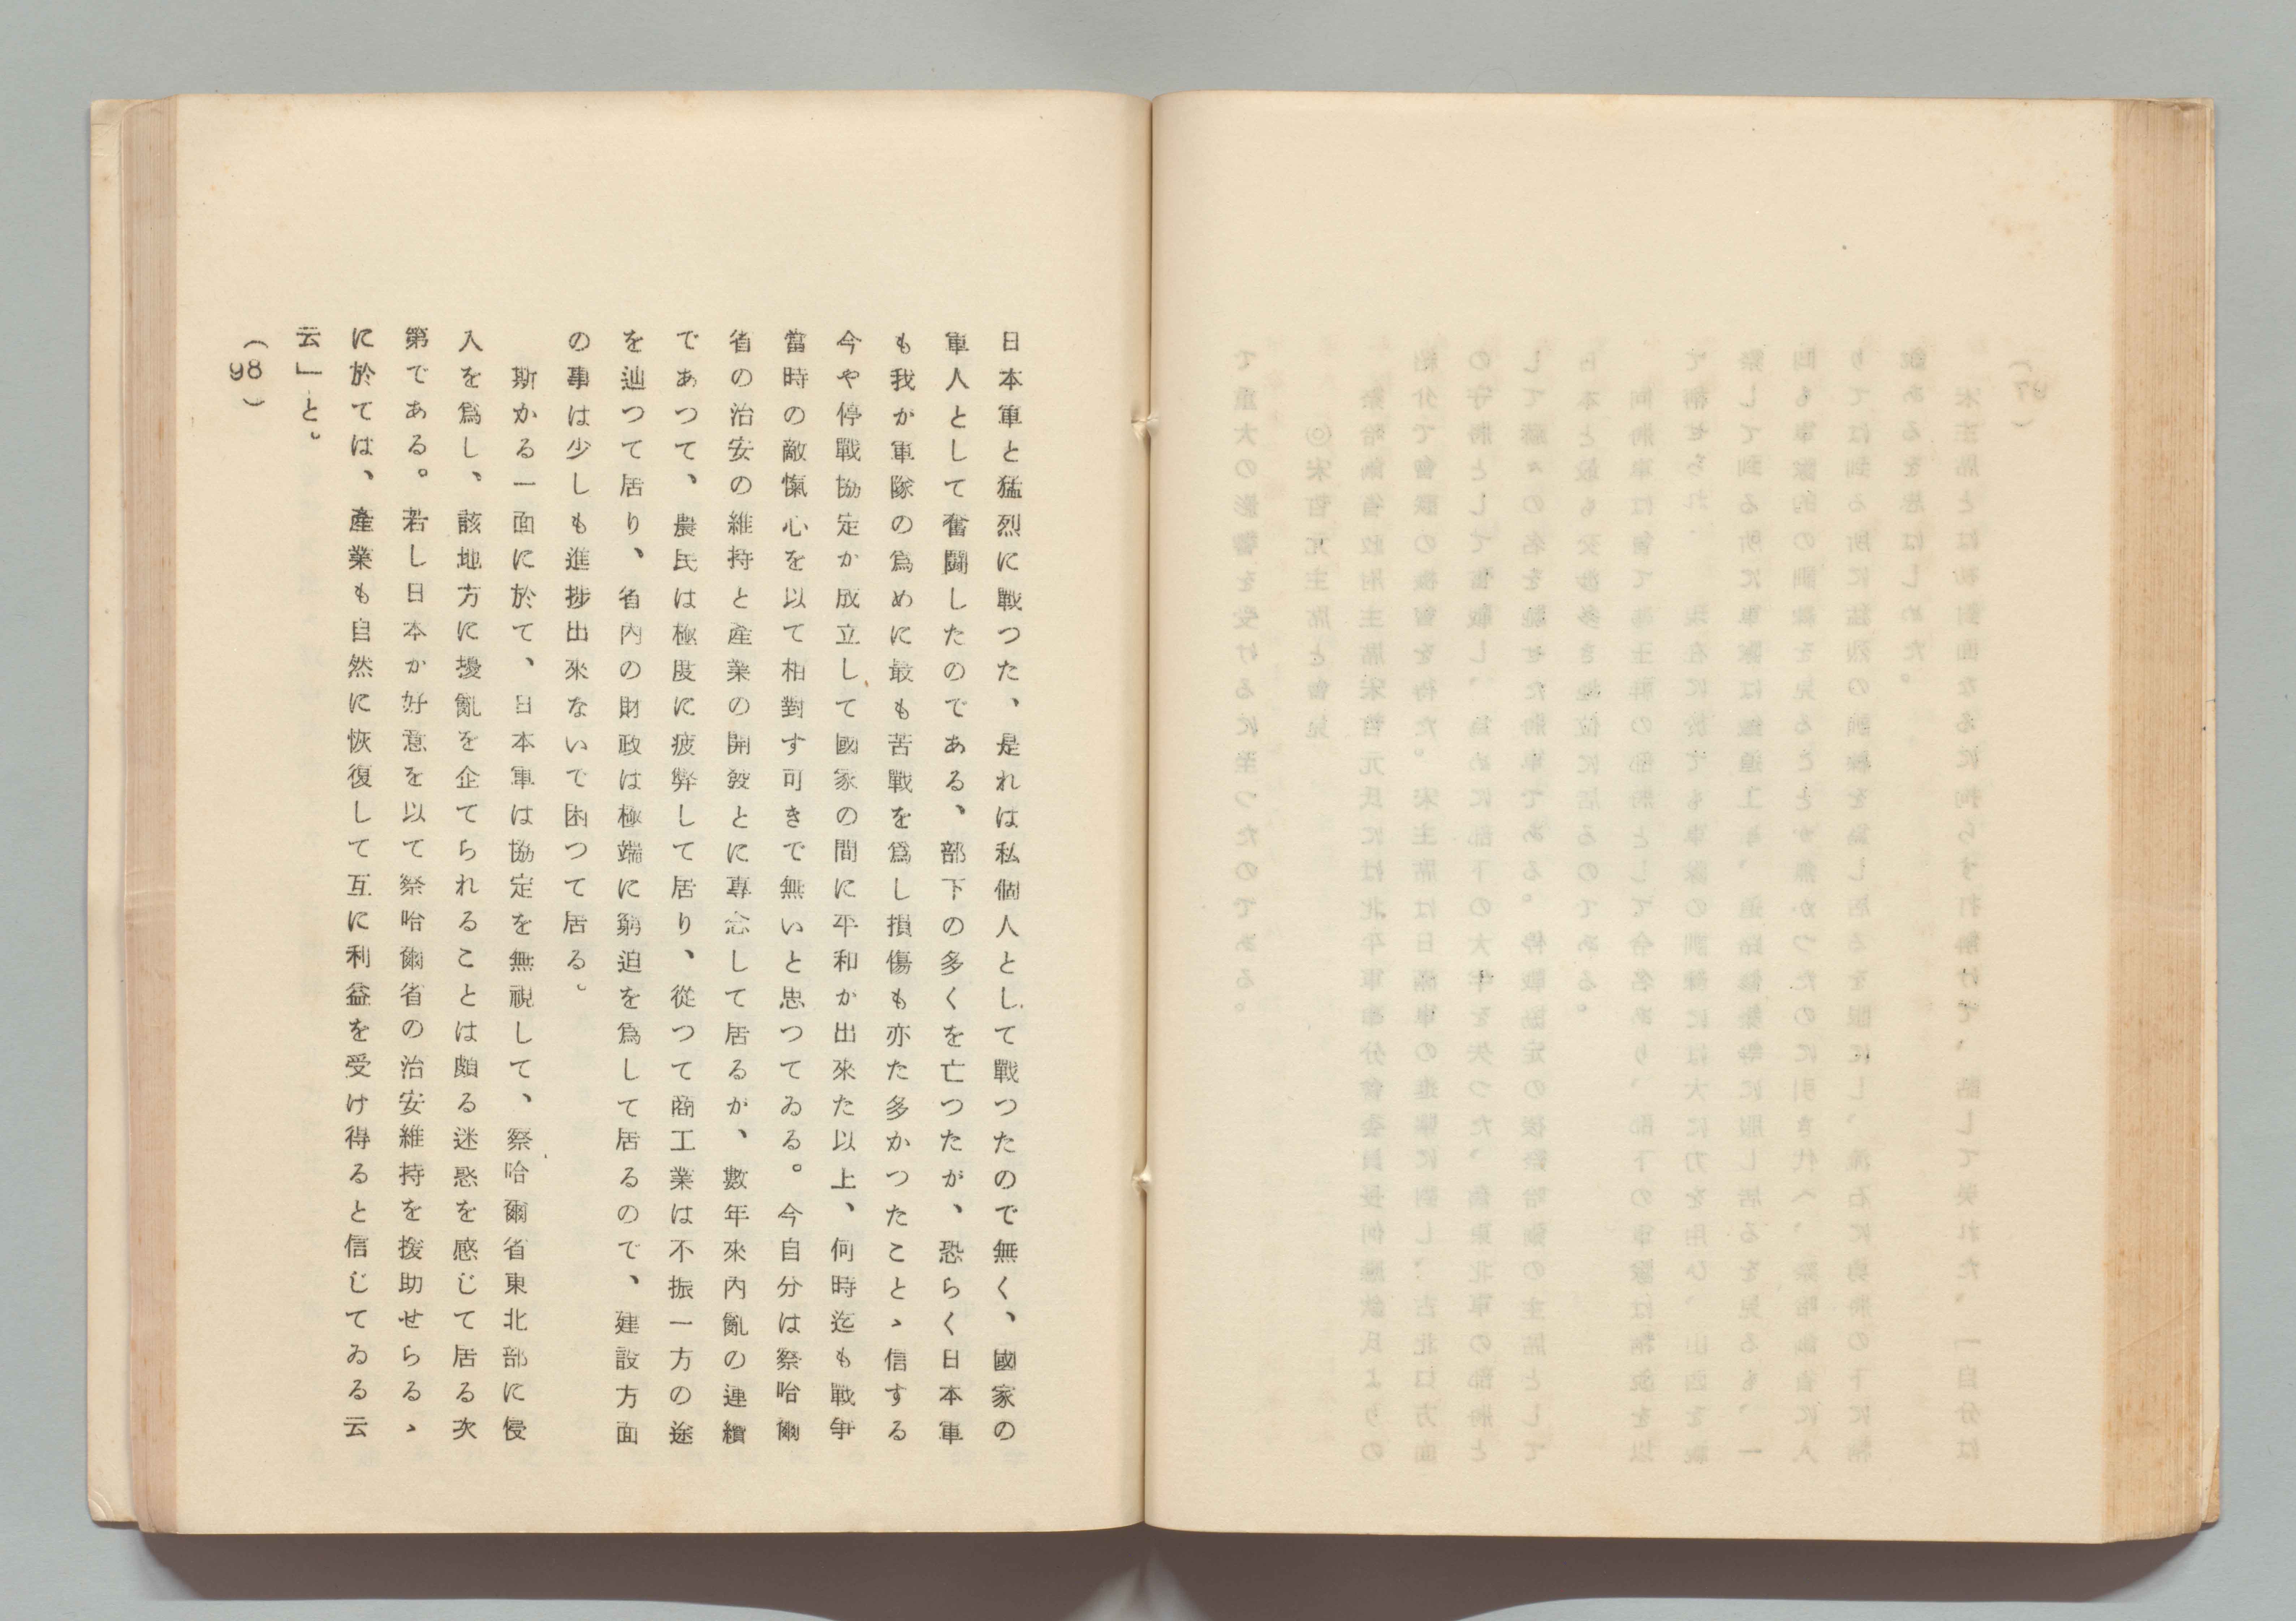 日本軍と猛烈に戰つた、是れは私個人として戰つたので無く、國家の
軍人として奮闘したのである、部下の多くを亡つたが、恐らく日本軍
も我か軍隊の爲めに最も苦戰を爲し損傷も亦た多かつたことゝ信する
今や停戰協定か成立して國家の間に平和か出來た以上、何時迄も戰爭
當時の敵愾心を以て相對す可きで無いと思つてゐる。今自分は察哈爾
省の治安の維持と產業の開發とに專念して居るが、數年來內亂の連續
であつて、農民は極度に疲弊して居り、從つて商工業は不振一方の途
を辿つて居り、省內の財政は極端に窮迫を爲して居るので、建設方面
の事は少しも進捗出來ないで困つて居る。
斯かる一面に於て、日本軍は協定を無視して、察哈爾省東北部に侵
入を爲し、該地方に擾亂を企てられることは頗る迷惑を感じて居る次
第である。若し日本か好意を以て察哈爾省の治安維持を援助せらるゝ
に於ては、產業も自然に恢復して互に利益を受け得ると信じてゐる云
云」と。
(98)